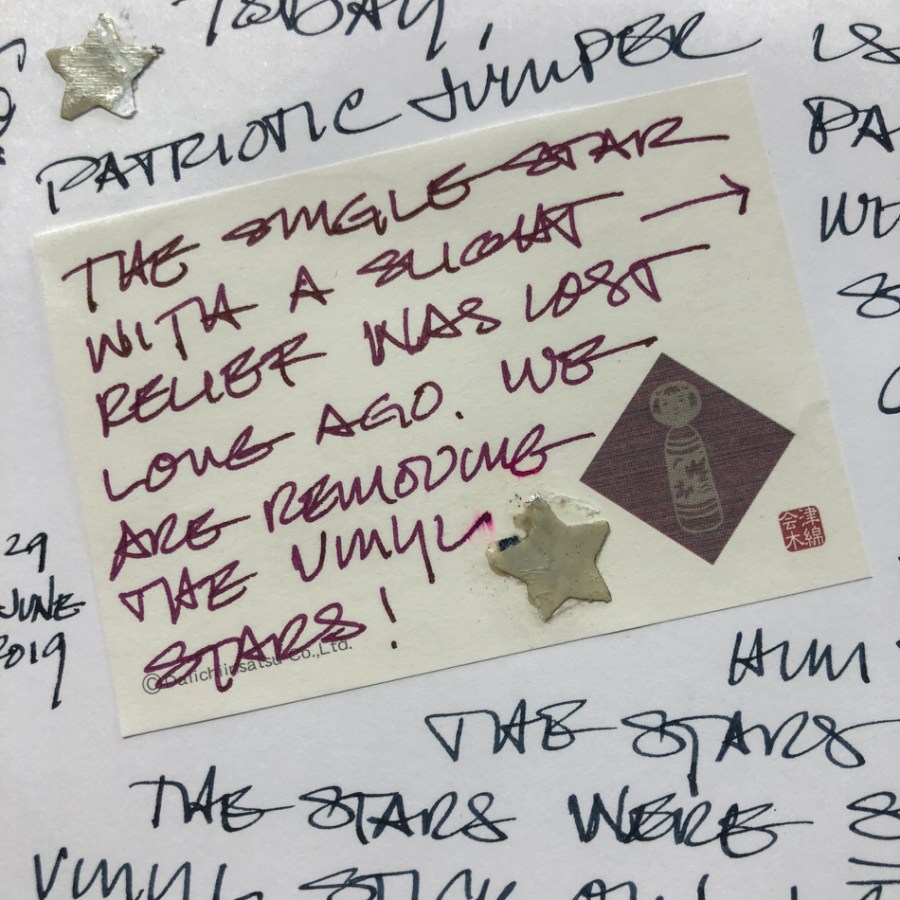 TODAY,
PATRIOTIC JUMPER
IS
PA
WE
THE SINGLE STAR
WITH A SLIGHT →
RELIEF WAS LOST
LONG AGO. WE
ARE REMOVING
THE VINYL
STARS!
© Daiichiinsatsu Co.,Ltd.
会津
木綿
29
JUNE
2019
HIM
THE STARS
THE STARS WERE S
VINYL STICK ON